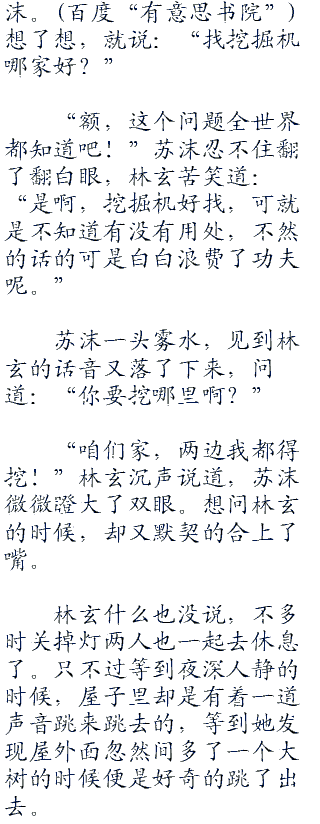 沫。(百度“有意思书院”)
想了想，就说：“找挖掘机
哪家好？”
“额，这个问题全世界
都知道吧！”苏沫忍不住翻
了翻白眼，林玄苦笑道：
“是啊，挖掘机好找，可就
是不知道有没有用处，不然
的话的可是白白浪费了功夫
呢。”
苏沫一头雾水，见到林
玄的话音又落了下来，问
道：“你要挖哪里啊？”
“咱们家，两边我都得
挖！”林玄沉声说道，苏沫
微微瞪大了双眼。想问林玄
的时候，却又默契的合上了
嘴。
林玄什么也没说，不多
时关掉灯两人也一起去休息
了。只不过等到夜深人静的
时候，屋子里却是有着一道
声音跳来跳去的，等到她发
现屋外面忽然间多了一个大
树的时候便是好奇的跳了出
去。